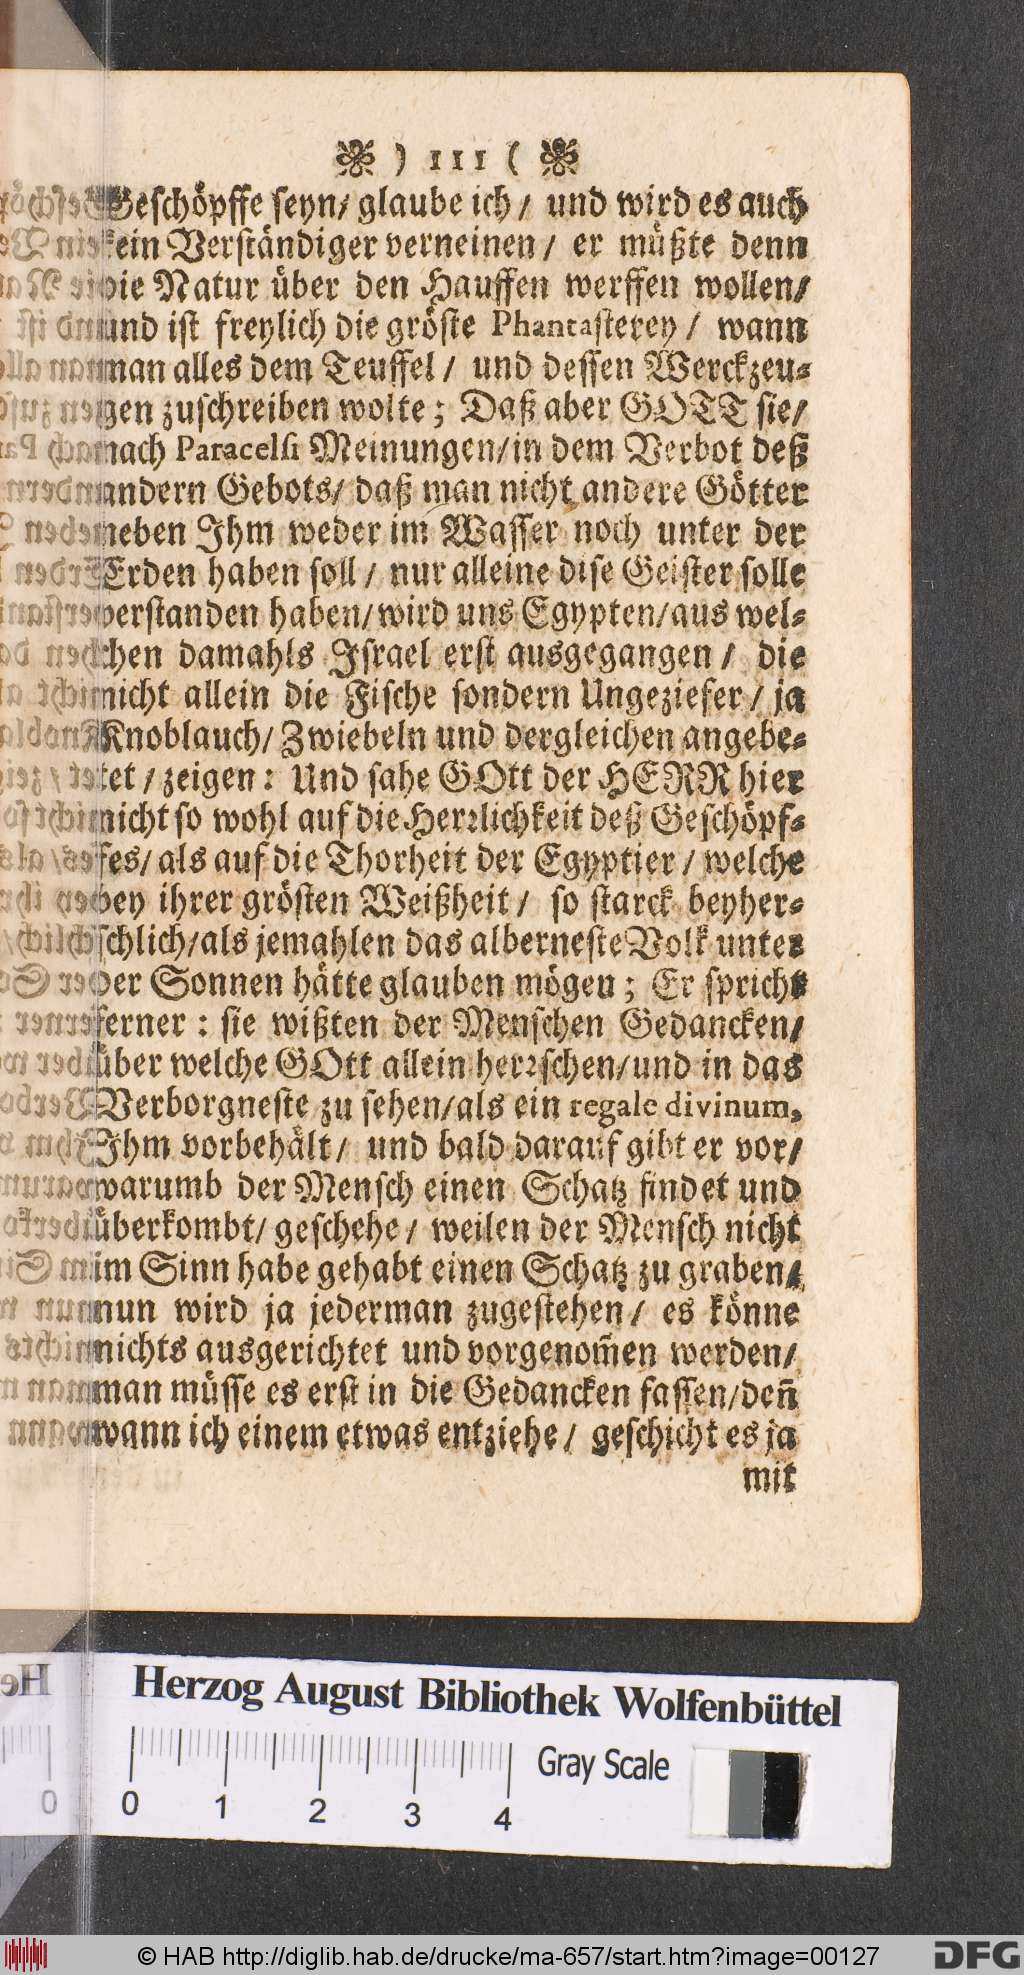 ) 111 (
Geschöpffe seyn/ glaube ich/ und wird es auch
kein Verständiger verneinen/ er müßte denn
die Natur über den Hauffen werffen wollen/
und ist freylich die gröste Phantasterey/ wann
man alles dem Teuffel/ und dessen Werckzeu-
gen zuschreiben wolte; Daß aber GOTT sie/
nach Paracelsi Meinungen/in dem Verbot deß
andern Gebots/ daß man nicht andere Götter
neben Ihm weder im Wasser noch unter der
Erden haben soll/ nur alleine dise Geister solle
verstanden haben/wird uns Egypten/aus wel-
chen damahls Israel erst ausgegangen/ die
nicht allein die Fische sondern Ungeziefer/ ja
Knoblauch/ Zwiebeln und dergleichen angebe-
tet/zeigen: Und sahe GOtt der HERR hier
nicht so wohl auf die Herrlichkeit deß Geschöpf-
fes/ als auf die Thorheit der Egyptier/ welche
bey ihrer grösten Weißheit/ so starck beyher-
schlich/als jemahlen das alberneste Volk unter
der Sonnen hätte glauben mögen; Er spricht
ferner: sie wißten der Menschen Gedancken/
über welche GOtt allein herrschen/und in das
Verborgneste zu sehen/als ein regale divinum,
Ihm vorbehält/ und bald darauf gibt er vor/
warumb der Mensch einen Schatz findet und
überkombt/ geschehe/ weilen der Mensch nicht
im Sinn habe gehabt einen Schatz zu graben/
nun wird ja jederman zugestehen/ es könne
nichts ausgerichtet und vorgenom̃en werden/
man müsse es erst in die Gedancken fassen/deñ
wann ich einem etwas entziehe/ geschicht es ja
mit
Herzog August Bibliothek Wolfenbüttel
Gray Scale
0 1 2 3 4
© HAB http://diglib.hab.de/drucke/ma-657/start.htm?image=00127
DFG